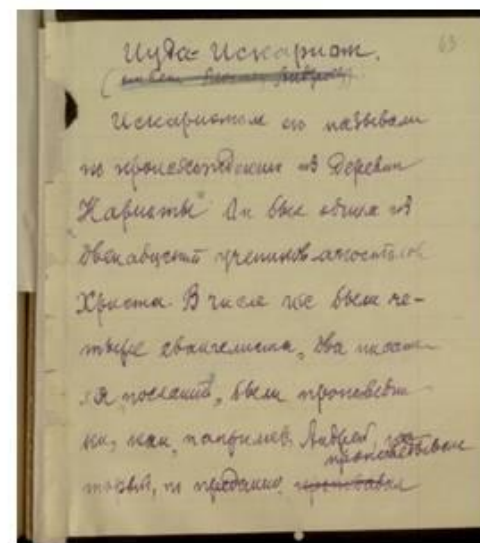 63
Иуда-Искариот.
Искариотом его называли
по происхождению из деревни
"Кариоты" Он был одним из
двенадцати учеников-апостолов
Христа. В числе их были че-
тыре евангелиста, два писате-
ля посланий, были проповедни-
ки, как, например, Андрей, ко-
проповедывал
торый, по преданию,